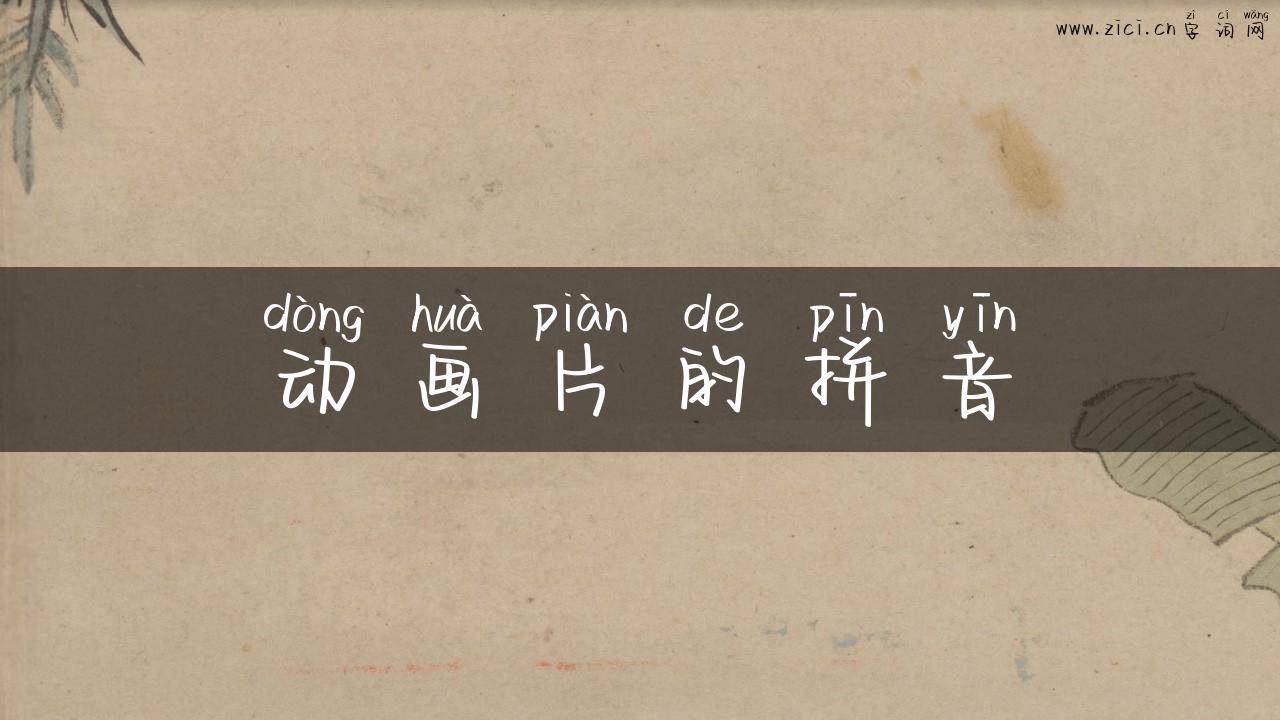 zì cí wǎng
www.zici.cn 字 词 网
dòng huà piàn de pīn yīn
动 画 片 的 拼 音